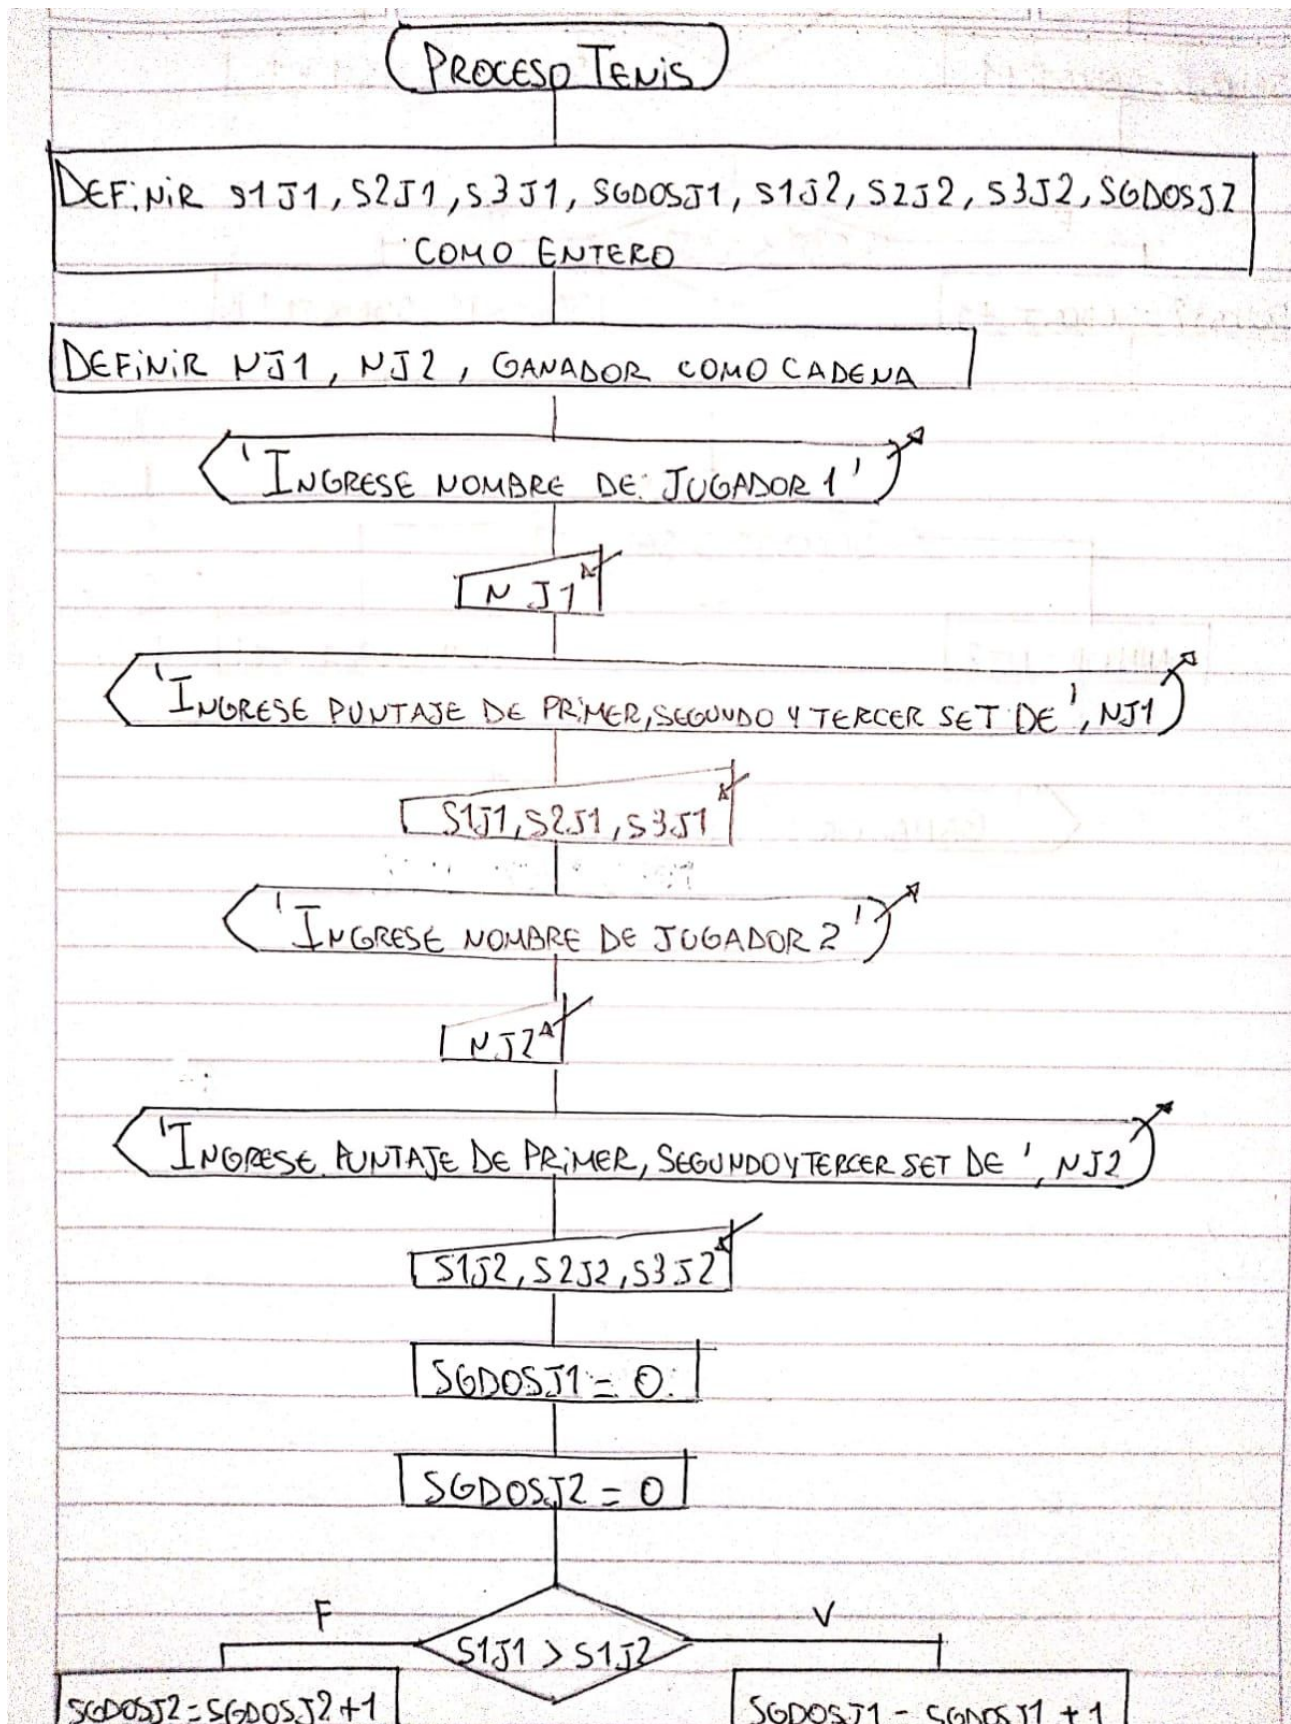 PROCESO TENIS
DEFINIR S1J1, S2J1, S3J1, SGDOSJ1, S1J2, S2J2, S3J2, SGDOSJ2
COMO ENTERO
DEFINIR NJ1, NJ2, GANADOR COMO CADENA
'INGRESE NOMBRE DE JUGADOR 1'
NJ1
'INGRESE PUNTAJE DE PRIMER, SEGUNDO Y TERCER SET DE', NJ1
S1J1, S2J1, S3J1
'INGRESE NOMBRE DE JUGADOR 2'
NJ2
'INGRESE PUNTAJE DE PRIMER, SEGUNDO Y TERCER SET DE', NJ2
S1J2, S2J2, S3J2
SGDOSJ1 = 0
SGDOSJ2 = 0
F
V
S1J1 > S1J2
SGDOSJ2 = SGDOSJ2 + 1
SGDOSJ1 = SGDOSJ1 + 1